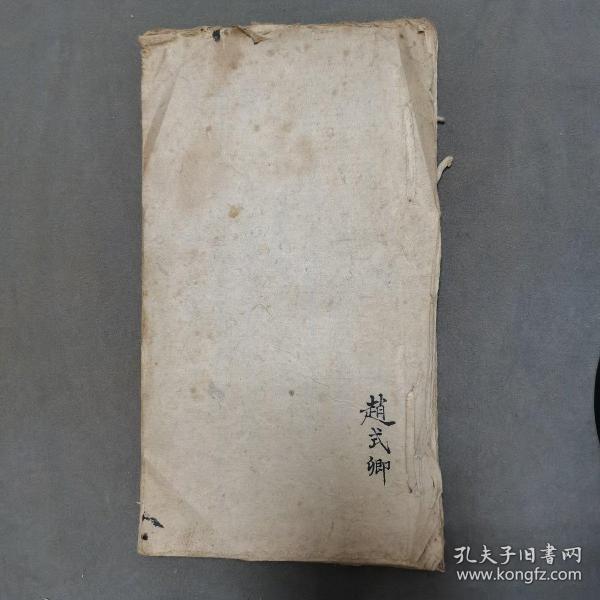 趙式卿
孔夫子旧書网
www.kongfz.com